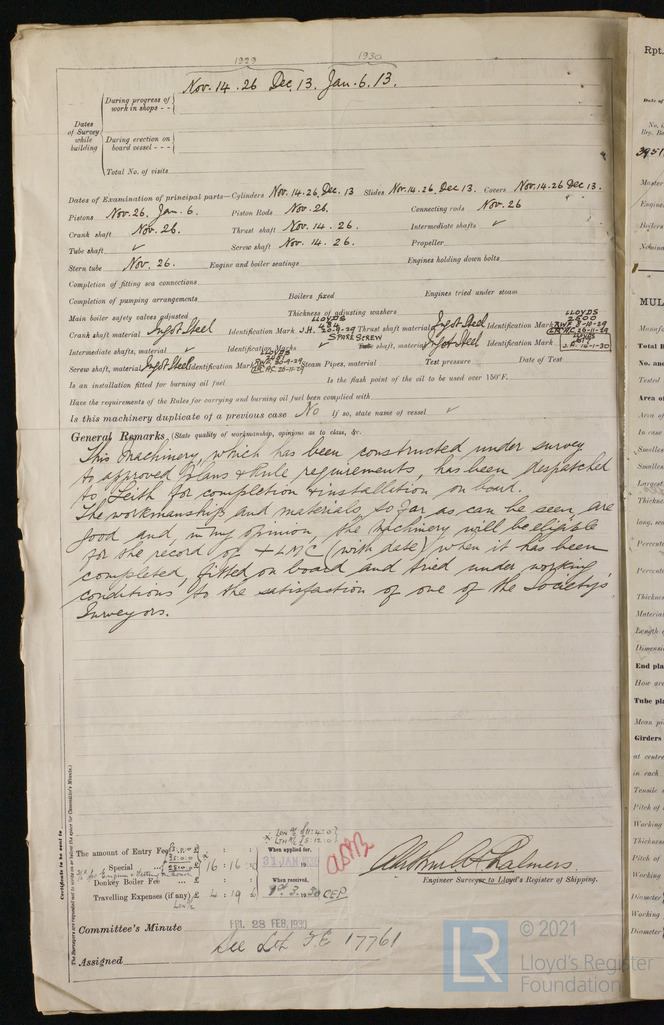 1929 1930
Nov. 14. 26 Dec. 13. Jan. 6. 13.
Dates of Survey while building
During progress of work in shops - -
During erection on board vessel - - -
Total No. of visits
Dates of Examination of principal parts—Cylinders Nov. 14. 26, Dec. 13 Slides Nov. 14. 26, Dec 13. Covers Nov. 14. 26 Dec 13.
Pistons Nov. 26. Jan. 6. Piston Rods Nov. 26. Connecting rods Nov. 26
Crank shaft Nov. 26. Thrust shaft Nov. 14. 26. Intermediate shafts ✓
Tube shaft ✓ Screw shaft Nov. 14. 26. Propeller
Stern tube Nov. 26. Engine and boiler seatings Engines holding down bolts
Completion of fitting sea connections
Completion of pumping arrangements Boilers fixed Engines tried under steam
Main boiler safety valves adjusted Thickness of adjusting washers
Crank shaft material Ingot Steel Identification Mark LLOYDS J.H. 20-9-29 Thrust shaft material Ingot Steel Identification Mark LLOYDS 2600 RWF
Intermediate shafts, material ✓ Identification Marks ✓ SPARE SCREW shaft, material Ingot Steel Identification Mark J.R. 14-1-30
Screw shaft, material Ingot Steel Identification Mark LLOYDS Steam Pipes, material Test pressure Date of Test
Is an installation fitted for burning oil fuel Is the flash point of the oil to be used over 150°F.
Have the requirements of the Rules for carrying and burning oil fuel been complied with
Is this machinery duplicate of a previous case No If so, state name of vessel ✓
General Remarks (State quality of workmanship, opinions as to class, &c.
This machinery, which has been constructed under survey
to approved plans & Rule requirements, has been despatched
to Leith for completion & installation on board.
The workmanship and materials, so far as can be seen, are
good and, in my opinion, the machinery will be eligible
for the record of + LMC (with date) when it has been
completed, fitted on board and tried under working
conditions to the satisfaction of one of the Society's
Surveyors.
Certificate to be sent to
The amount of Entry Fee
Special ... £ 16 : 16 :
Donkey Boiler Fee ... £ : :
Travelling Expenses (if any) £ 4 : 19 : 6
When applied for,
31 JAN 1930
When received,
Engineer Surveyor to Lloyd's Register of Shipping.
Committee's Minute FRI. 28 FEB. 1930
See Lth F.E. 17761
Assigned
© 2021
LR
Lloyd's Register
Foundation
Rpt.
MUL